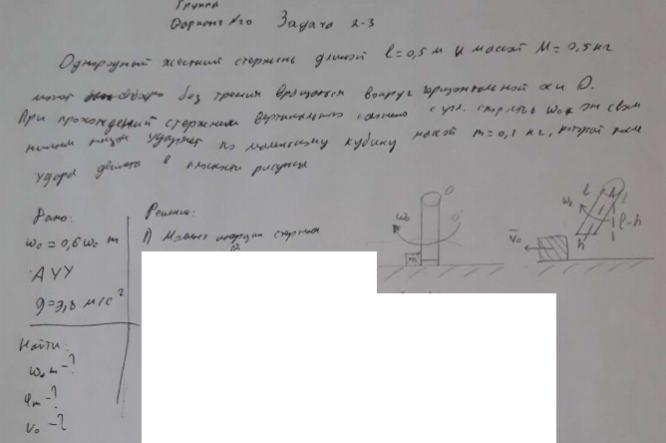 Группа
Вариант №20 Задача 2-3
Однородный жесткий стержень длиной l = 0,5 м и массой M = 0,5 кг
может без трения вращаться вокруг горизонтальной оси O.
При прохождении стержнем вертикального с угл. ω₀ он своим
нижним ударяет по маленькому кубику массой m = 0,1 кг, который после
удара в плоскости рисунка
Дано:
ω₀ = 0,6 ω₀ m
АУУ
g = 9,8 м/с²
Найти:
ω₀ m - ?
φm - ?
v₀ - ?
Решение:
1) Момент инерции стержня
O
ω₀
m
l
ω₀
l-h
h
v₀